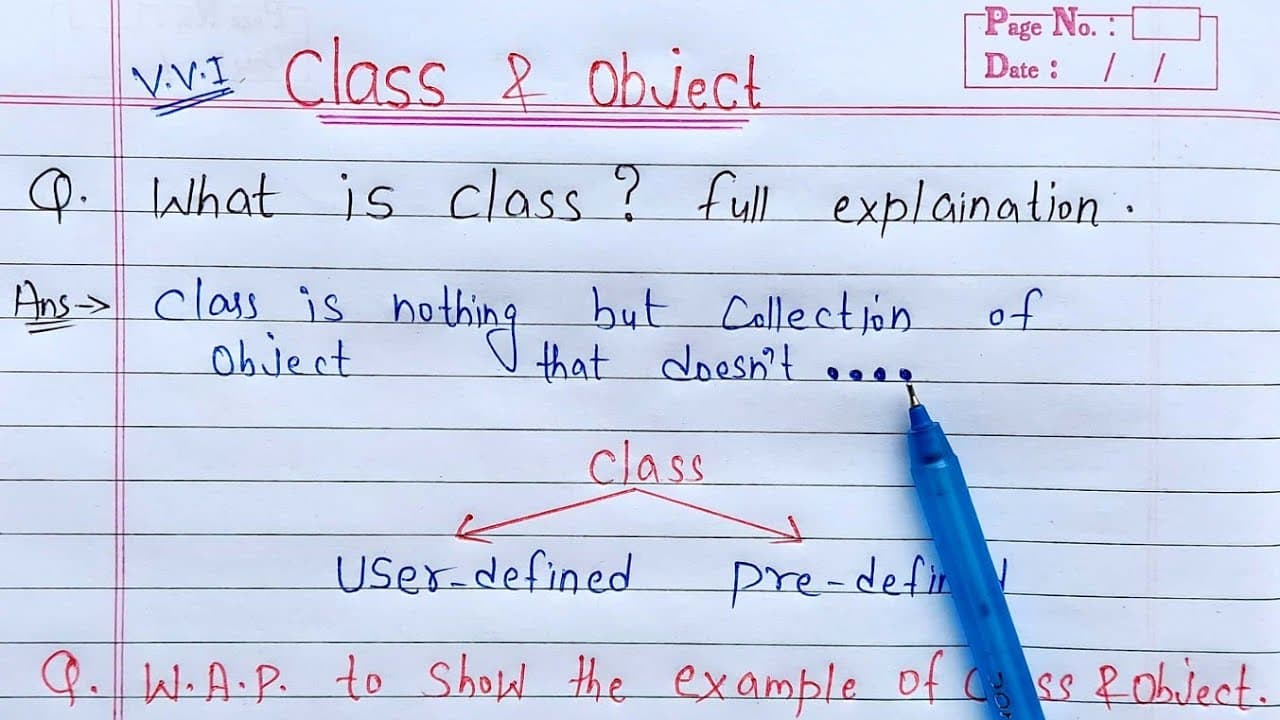 Page No. :
Date : / /
V.V.I Class & Object
Q. What is class? full explaination.
Ans→ Class is nothing but Collection of
Object that doesn't ....
Class
User-defined
Q. W.A.P. to show the example of & Object.